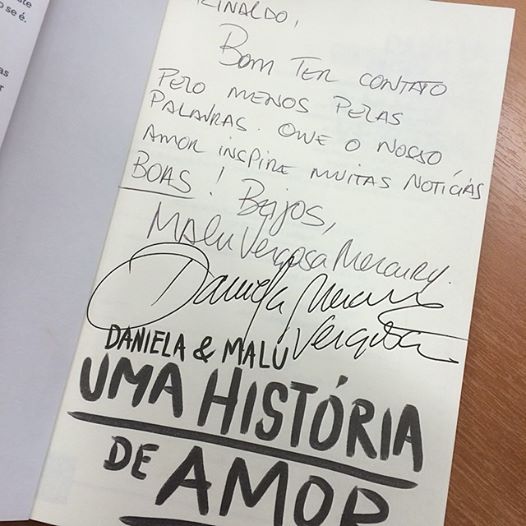 RINALDO,
BOM TER CONTATO
PELO MENOS PELAS
PALAVRAS. QUE O NOSSO
AMOR INSPIRE MUITAS NOTÍCIAS
BOAS! Beijos,
Malu Verçosa Mercury.
Daniela Mercury
Verçosa
DANIELA & MALU
UMA HISTÓRIA
DE AMOR